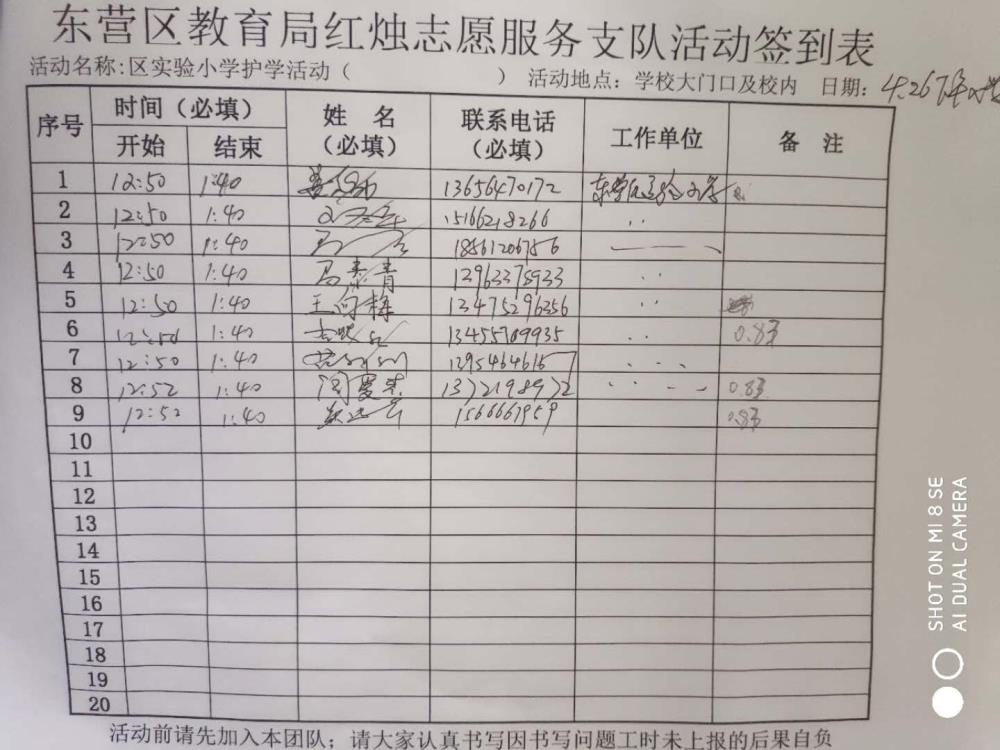 东营区教育局红烛志愿服务支队活动签到表
活动名称:区实验小学护学活动（ ） 活动地点：学校大门口及校内 日期：4.26
序号 时间（必填） 姓 名（必填） 联系电话（必填） 工作单位 备 注
开始 结束
1 12:50 1:40 13656470172
2 12:50 1:40 15166218266
3 12:50 1:40 18561206756
4 12:50 1:40 马素青 12963375933
5 12:50 1:40 王向梅 13475296356
6 1:40 13455709935 0.83
7 12:50 1:40
8 12:52 1:40 1372198972 0.83
9 12:52 1:40 1566661959 0.83
10
11
12
13
14
15
16
17
18
19
20
活动前请先加入本团队；请大家认真书写因书写问题工时未上报的后果自负
SHOT ON MI 8 SE
AI DUAL CAMERA